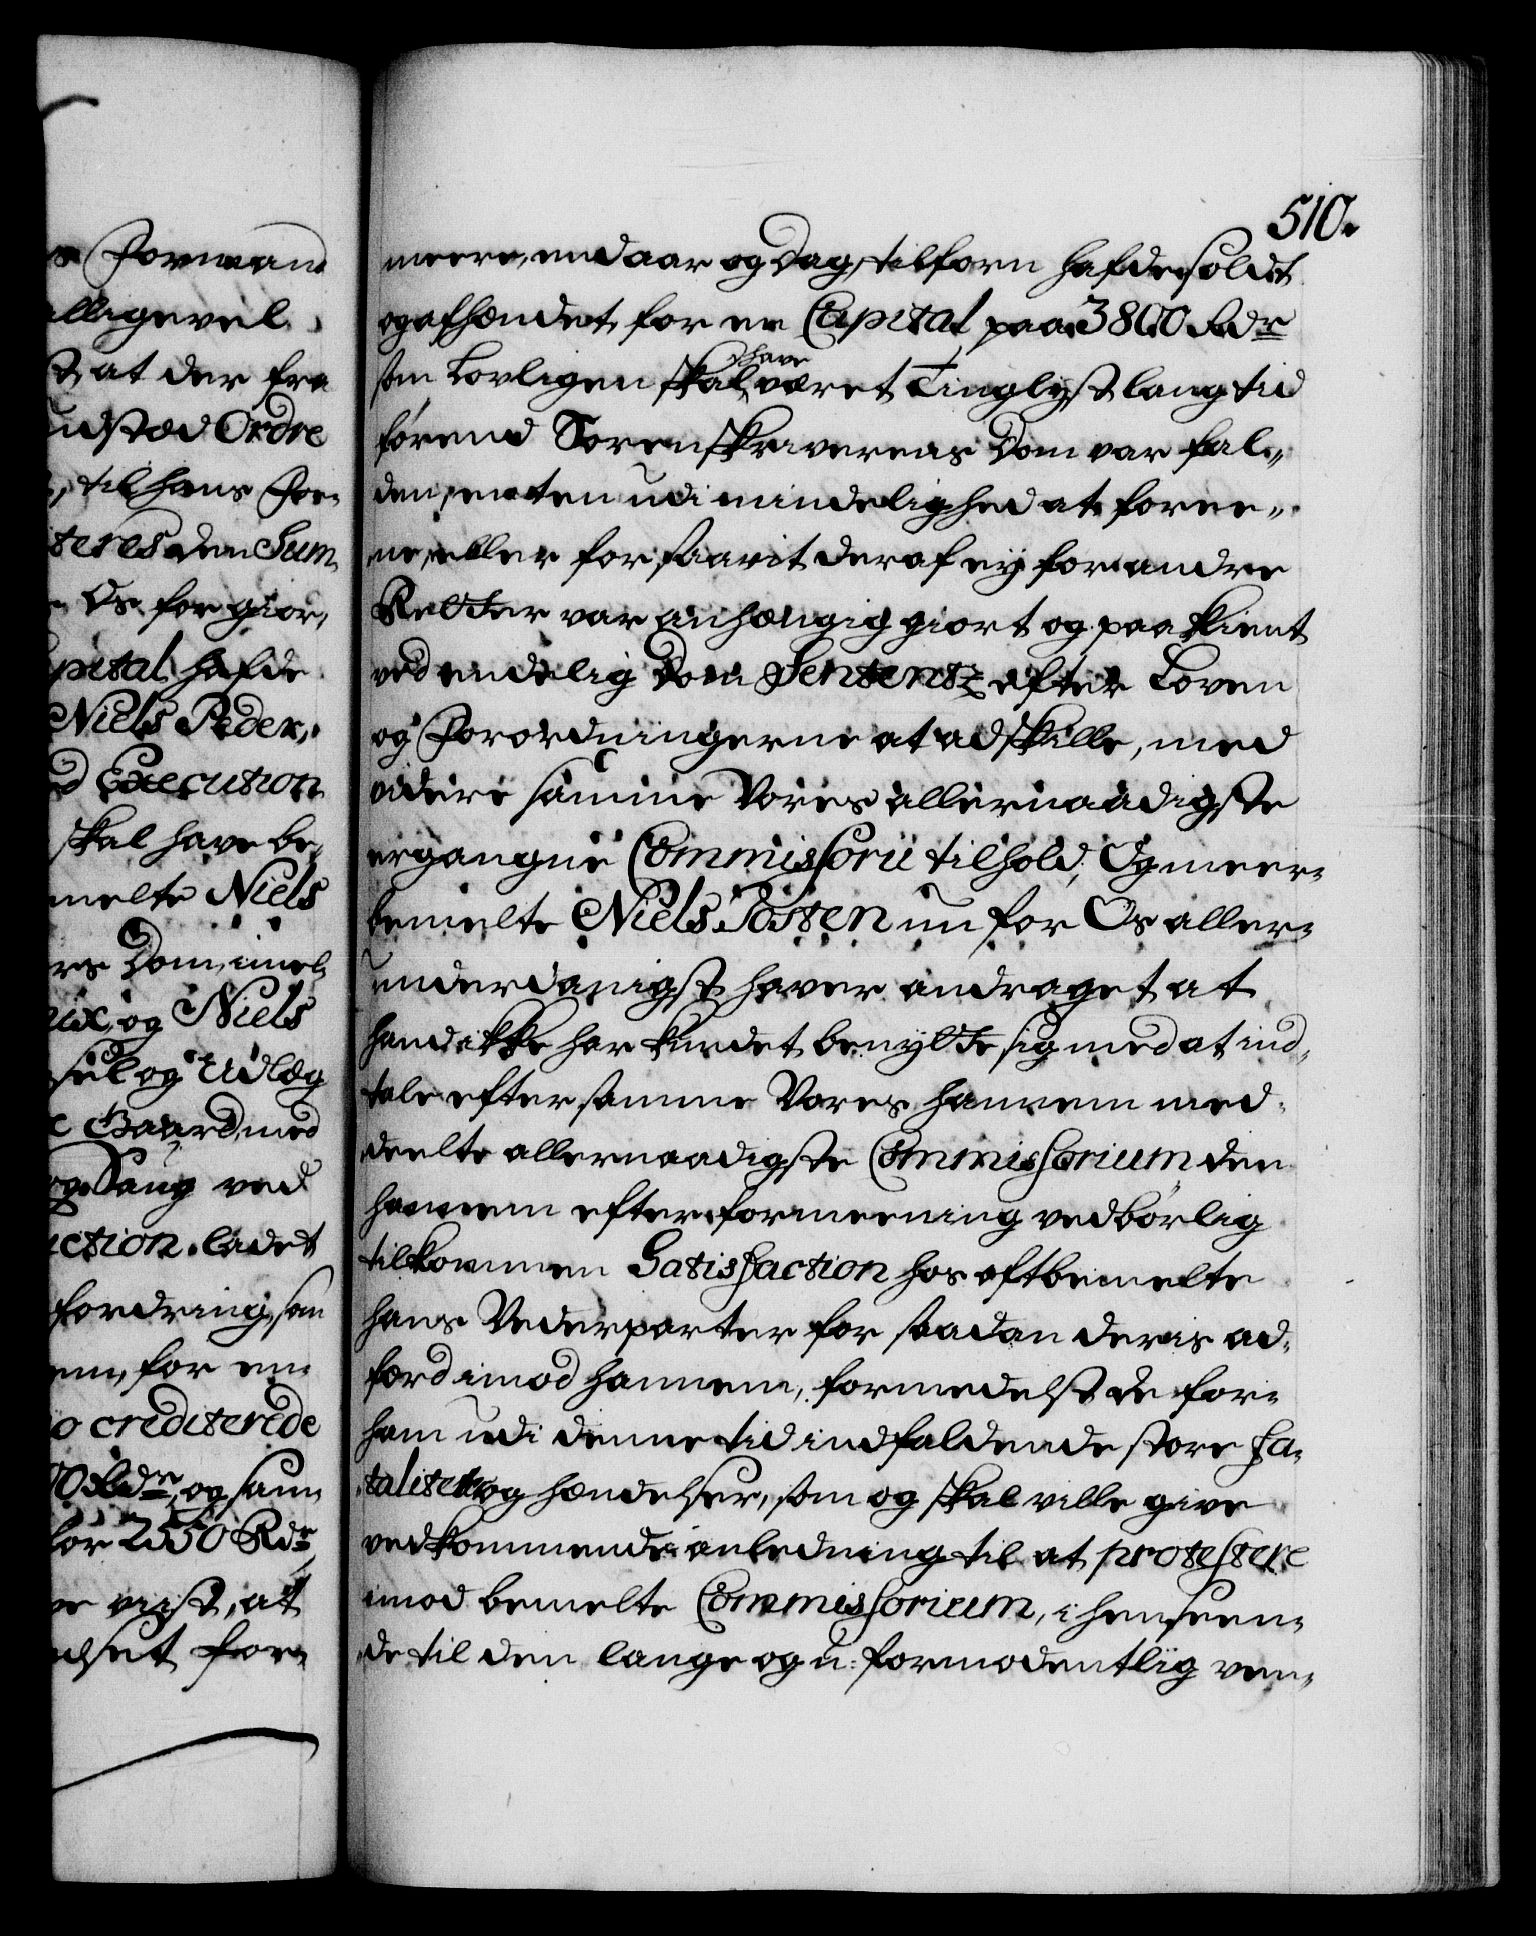 510.
meere, end aar og Dag, tilforn hafde soldt
og afhændet for en Capital paa 3800 Rdr
som Lovligen skal have været Tinglyst lang tid
førend Sorenskriverens Dom var fal„
den, enten udi mindelighed at foree„
ne, eller forsaavit deraf ey for andre
Retter var anhængig giort og paaskient
ved endelig Dom Sententz efter Loven
og Forordningerne at adskille, med
videre samme Vores allernaadigste
ergangne Commissorii tilhold; Og meer„
bemelte Niels Posten nu for Os aller„
underdanigst haver andraget at
hand ikke har kundet benytte sig med at ind„
tale efter samme Vores hannem med„
deelte allernaadigste Commissorium den
hannem efter formeening vedbørlig
tilkommen Satisfaction hos oftbemelte
hans Vederparter for saadan deris ad„
færd imod hannem, formedelst de for
ham udi denne tid indfaldende store Fa„
taliteter og hændelser, som og skal ville give
vedkommende anledning til at protestere
imod bemelte Commissorium, i henseen„
de til den lange og u-formodentlig ven„
Formand
alligevel
at der fra
udstæd Ordre
til hans For„
teres den Sum„
Os forgior„
pital hafde
Niels Peder„
Execution
skal have be„
melte Niels
rs Dom, imel„
og Niels
sel og Udlæg
Gaard, med
og Saug ved
ction ladet
fordring, som
em, for en
o crediterede
0 Rdr, og sam„
for 2550 Rdr
ve viist, at
udsset for„